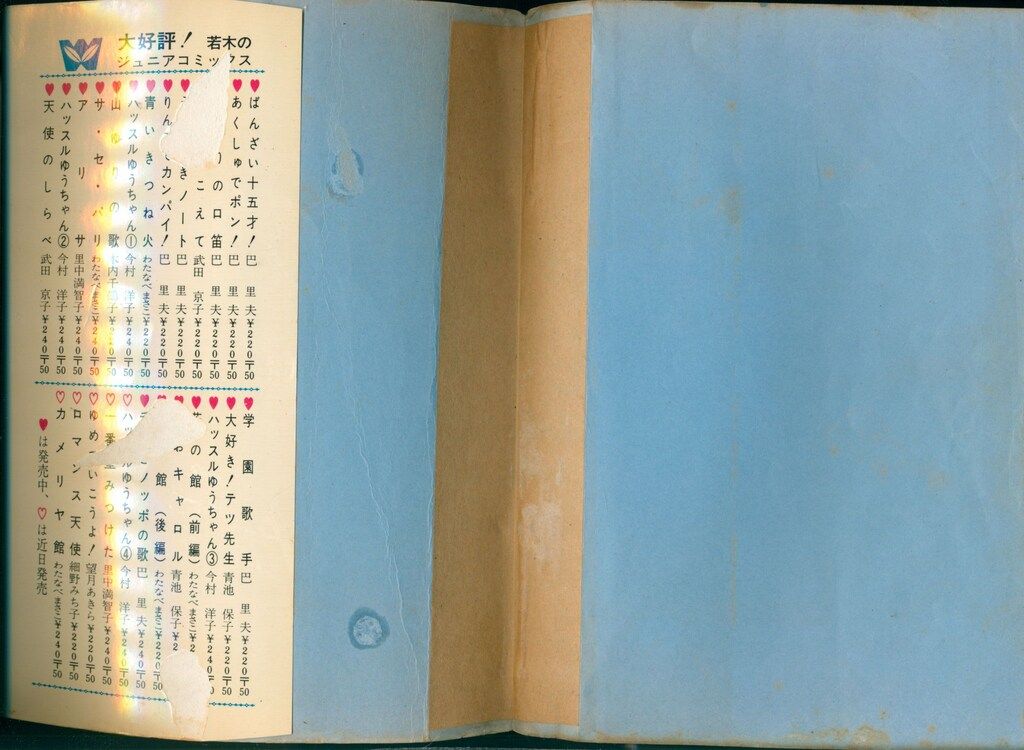 大好評！ 若木の
ジュニアコミックス
ばんざい十五才！ 巴 里夫 ¥220〒50
あくしゅでポン！ 巴 里夫 ¥220〒50
りの口笛 巴 里夫 ¥220〒50
こえて 武田 京子 ¥220〒50
きノート 巴 里夫 ¥220〒50
りんごでカンパイ！ 巴 里夫 ¥220〒50
青いきつね火 わたなべまさこ ¥220〒50
ハッスルゆうちゃん① 今村 洋子 ¥240〒50
山ゆりの歌 木内千鶴子 ¥220〒50
サ・セ・パリ わたなべまさこ ¥240〒50
アリサ 里中満智子 ¥240〒50
ハッスルゆうちゃん② 今村 洋子 ¥240〒50
天使のしらべ 武田 京子 ¥240〒50
学園歌手 巴 里夫 ¥220〒50
大好き！テツ先生 青池 保子 ¥220〒50
ハッスルゆうちゃん③ 今村 洋子 ¥240〒50
の館（前編） わたなべまさこ ¥2
キャロル 青池 保子 ¥2
館（後編） わたなべまさこ ¥220〒50
ノッポの歌 巴 里夫 ¥220〒50
ハッスルゆうちゃん④ 今村 洋子 ¥240〒50
一番星みつけた 里中満智子 ¥240〒50
ゆめついこうよ！ 望月あきら ¥220〒50
ロマンス天使 細野みち子 ¥220〒50
カメリヤ館 わたなべまさこ ¥240〒50
♥は発売中、♡は近日発売